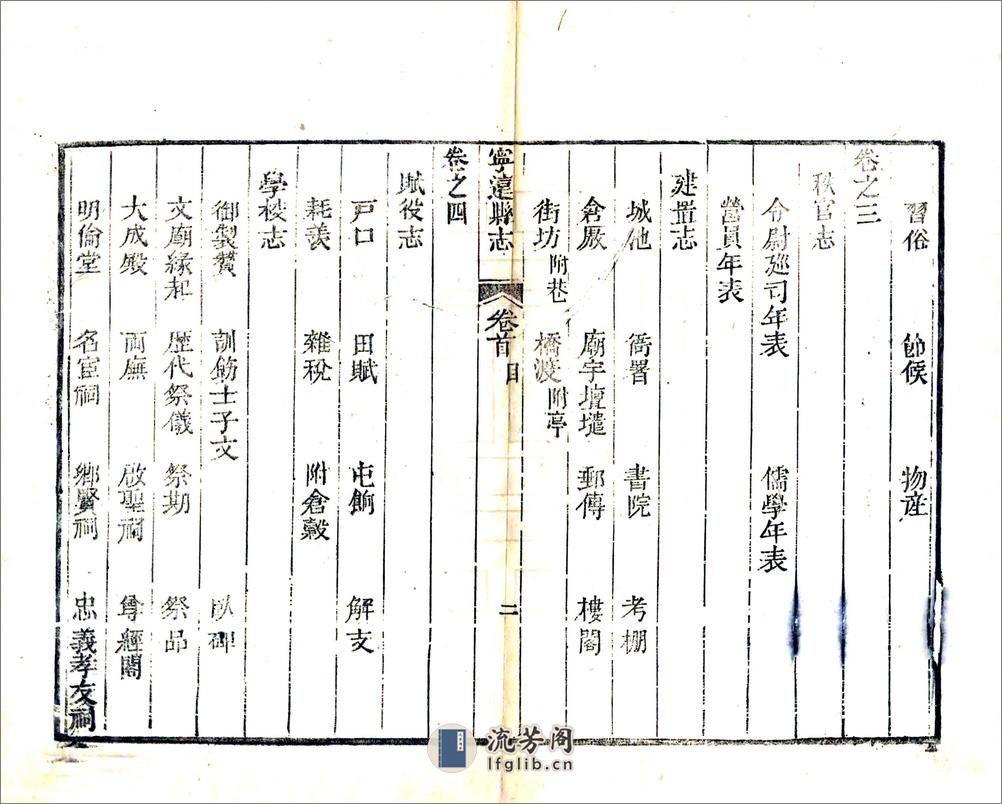 習俗　節候　物産
卷之三
秩官志
令尉廵司年表　儒學年表
營員年表
建置志
城池　衙署　書院　考棚
倉厫　廟宇壇壝　郵傳　樓閣
街坊附巷　橋渡附亭
寧遠縣志　卷首　目　二
卷之四
賦役志
戸口　田賦　屯餉　解支
耗羨　雜稅　附倉穀
學校志
御製贊　訓飭士子文　臥碑
文廟緣起　歷代祭儀　祭期　祭品
大成殿　兩廡　啟聖祠　尊經閣
明倫堂　名宦祠　鄉賢祠　忠義孝友祠
流芳阁
lfglib.cn